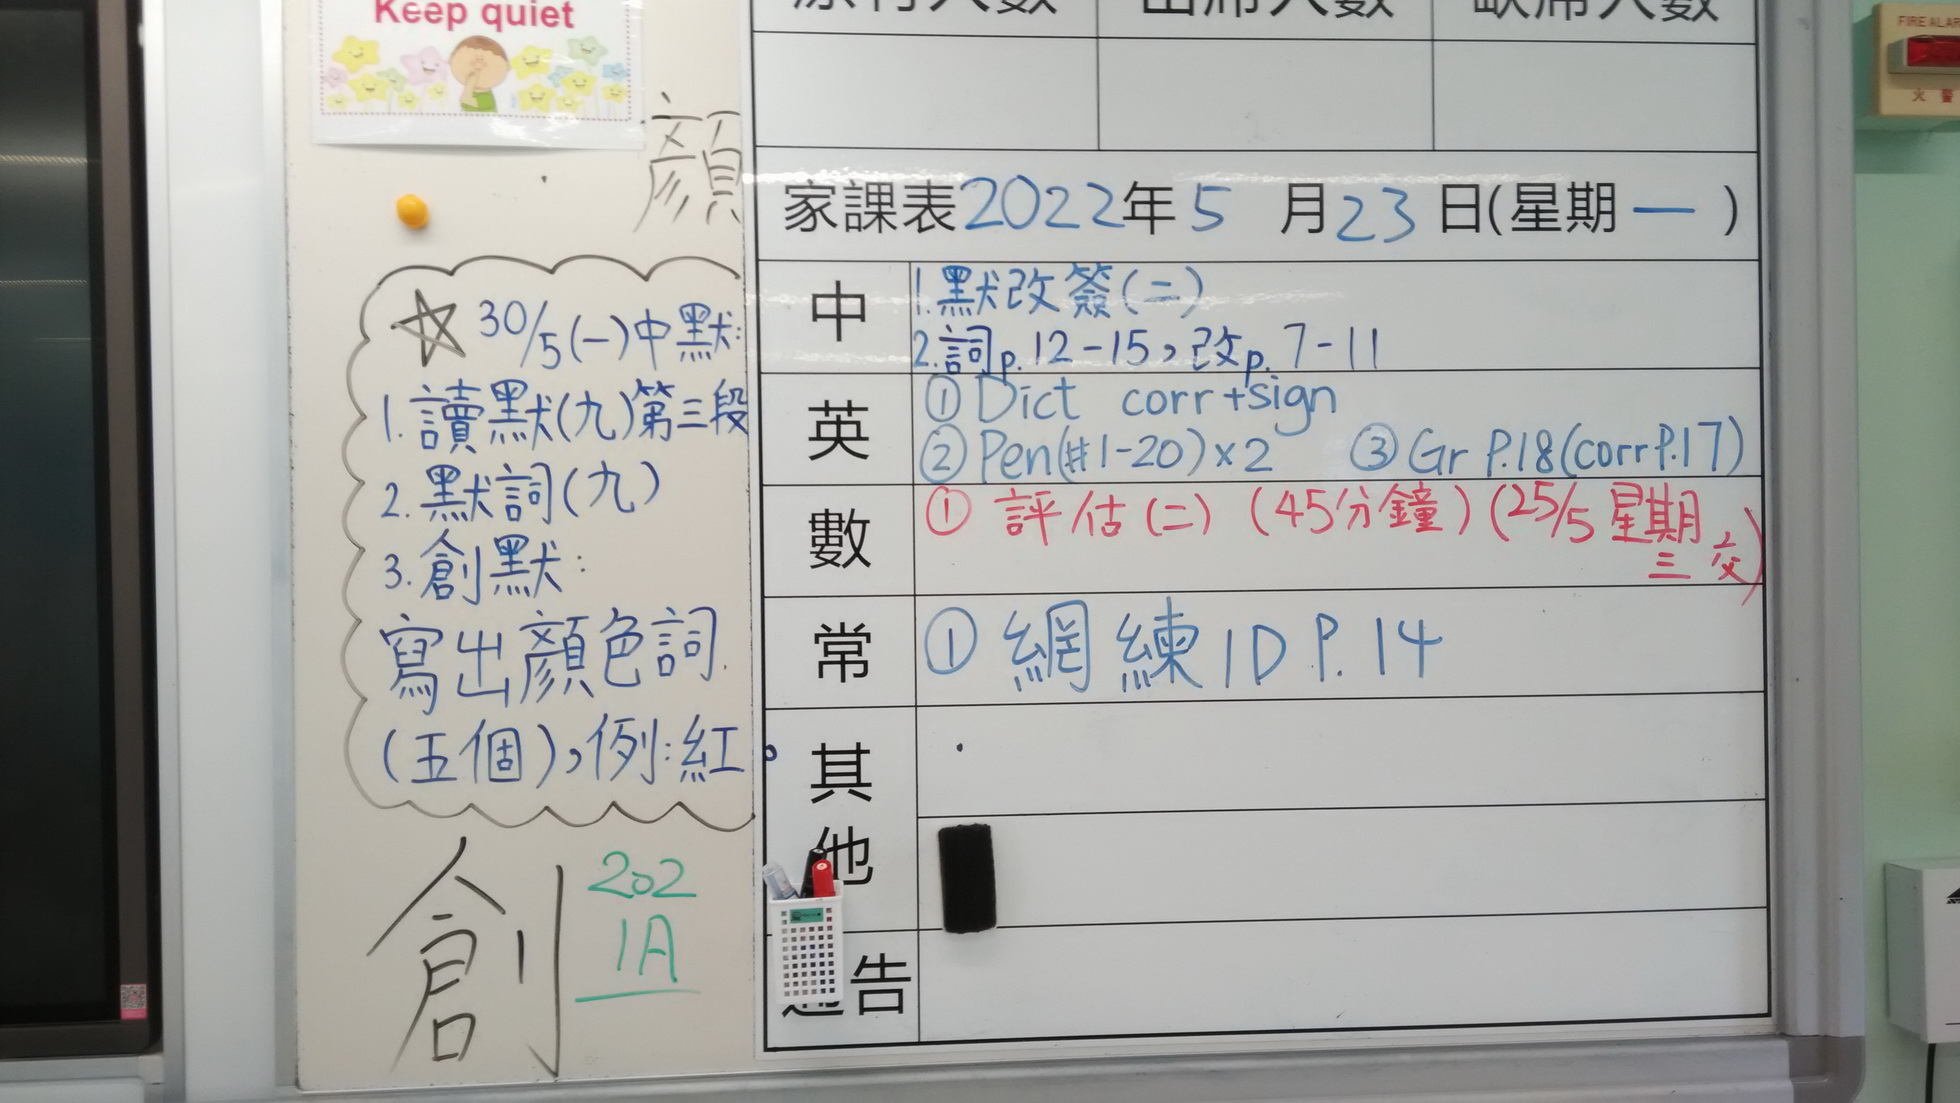 Keep quiet
顏
30/5(一)中默:
1. 讀默(九)第三段
2. 默詞(九)
3. 創默:
寫出顏色詞
(五個),例:紅。
創
202
1A
出席人數
家課表2022年5月23日(星期一)
中
1.默改簽(二)
2.詞p.12-15,改p.7-11
英
① Dict corr+sign
② Pen(#1-20)×2 ③ Gr P.18(corr P.17)
數
① 評估(二)(45分鐘)(25/5星期三交)
常
① 網練1D P.14
其他
告
FIRE ALAR
火警